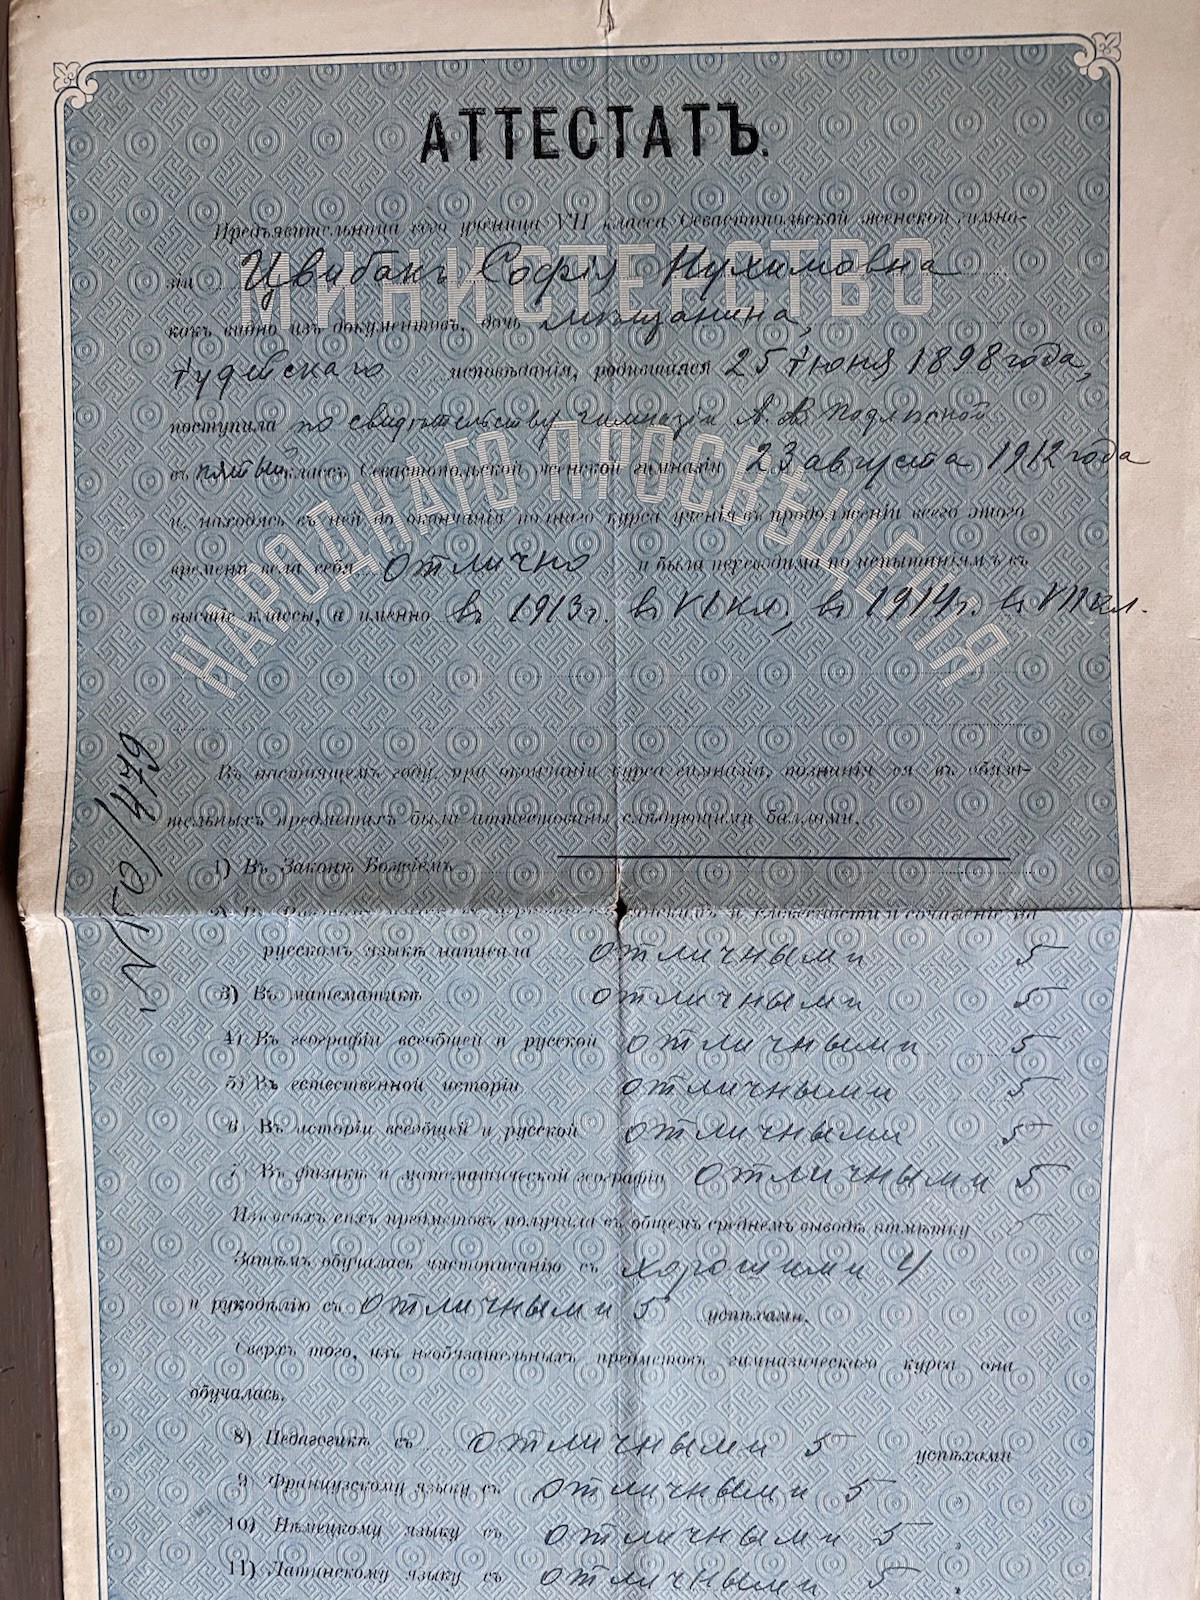 АТТЕСТАТЪ.
МИНИСТЕРСТВО
НАРОДНАГО ПРОСВѢЩЕНІЯ
Предъявительница сего ученица VII класса Севастопольской женской гимна-
зіи Цвибакъ Софія Нухимовна
какъ видно изъ документовъ, дочь мѣщанина,
іудейскаго исповѣданія, родившаяся 25 іюня 1898 года,
поступила по свидѣтельству гимназіи А. В.
въ пятый классъ Севастопольской женской гимназіи 23 августа 1912 года
и, находясь въ ней до окончанія полнаго курса ученія въ продолженіи всего этого
времени вела себя отлично и была переводима по испытаніямъ въ
высшіе классы, а именно въ 1913 г. въ VI кл., въ 1914 г. въ VII кл.
Въ настоящемъ году, при окончаніи курса гимназіи, познанія ея въ обяза-
тельныхъ предметахъ были аттестованы слѣдующими баллами.
1) Въ Законѣ Божіемъ
и словесности и сочиненіе на
русскомъ языкѣ написала отличными 5
3) Въ математикѣ отличными 5
4) Въ географіи всеобщей и русской отличными 5
5) Въ естественной исторіи отличными 5
6 Въ исторіи всеобщей и русской отличными 5
7 Въ физикѣ и математической географіи отличными 5
Изъ всѣхъ сихъ предметовъ получила въ общемъ среднемъ выводѣ отмѣтку
Затѣмъ обучалась чистописанію съ хорошими 4
и рукодѣлію съ отличными 5 успѣхами.
Сверхъ того, изъ необязательныхъ предметовъ гимназическаго курса она
обучалась.
8) Педагогикѣ съ отличными 5 успѣхами
9 Французскому языку съ отличными 5 „
10) Нѣмецкому языку съ отличными 5 „
11) Латинскому языку съ отличными 5 „